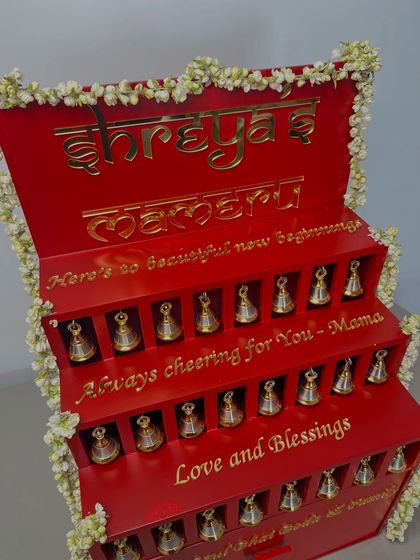 Shreya's
Mameru
Here's to beautiful new beginnings
Always cheering for You - Mama
Love and Blessings